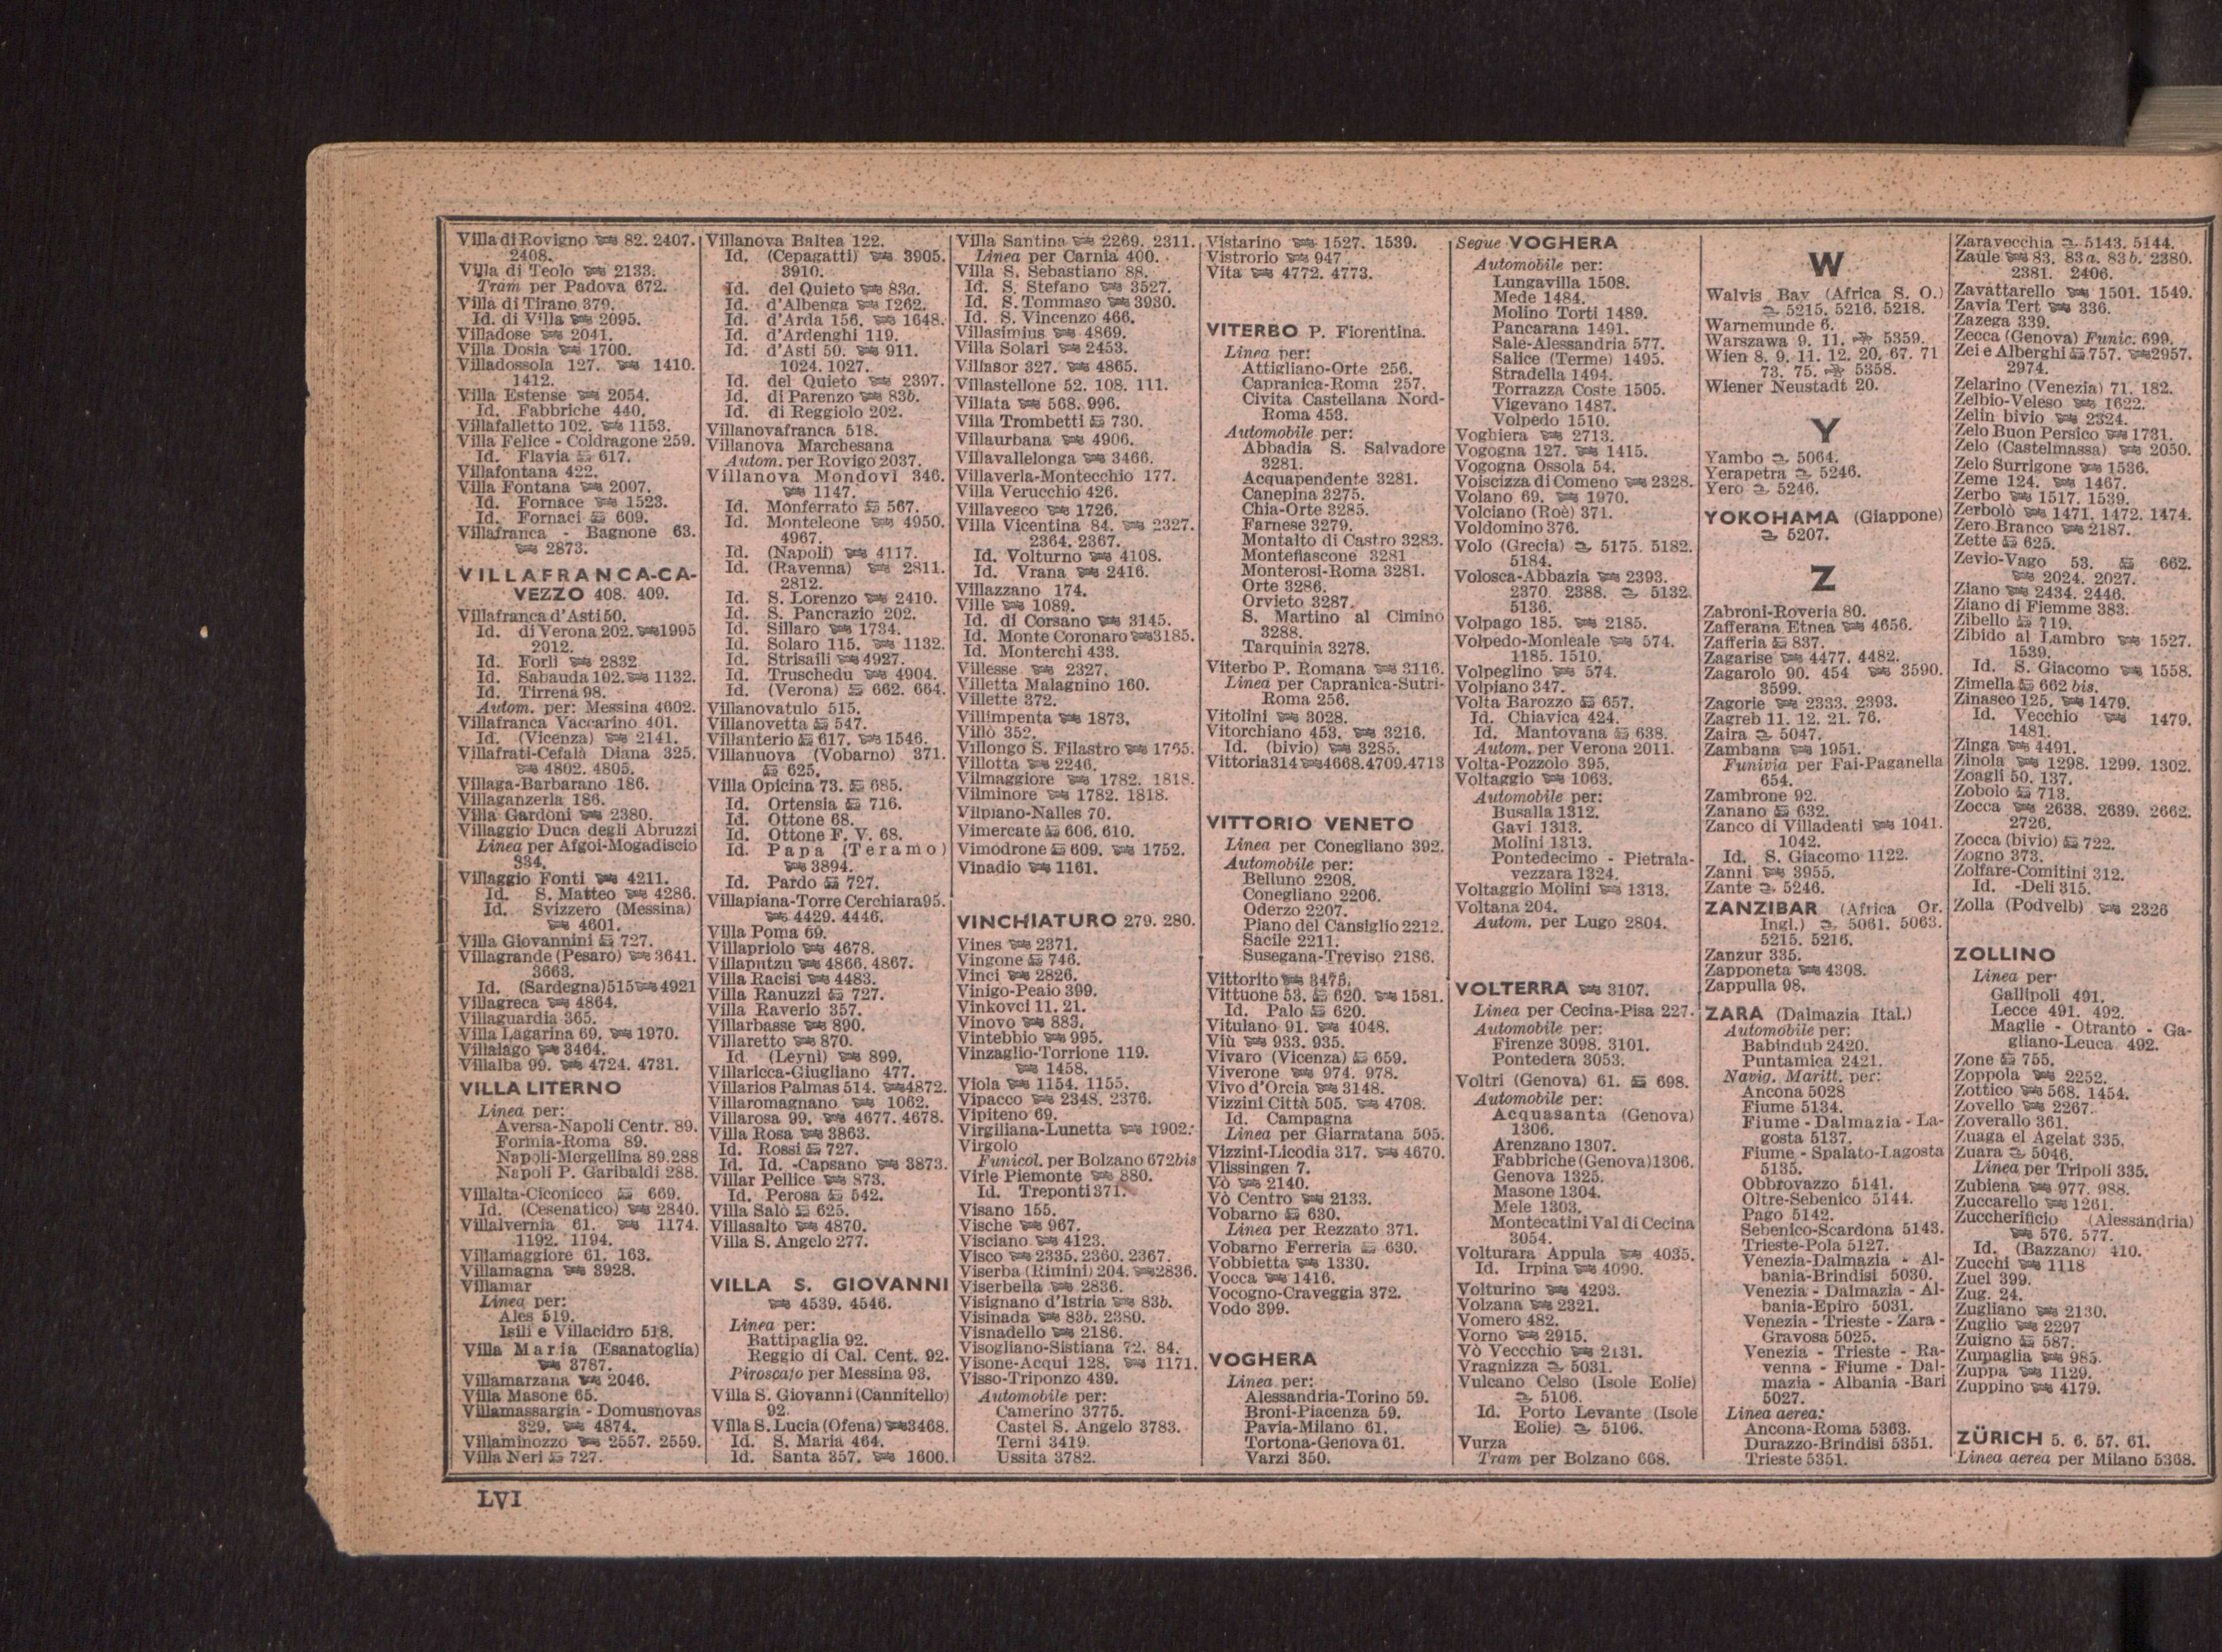 Villa di Rovigno 82. 2407.
2408.
Villa di Teolo 2133.
Tram per Padova 672.
Villa di Tirano 379.
Id. di Villa 2095.
Villadose 2041.
Villa Dosia 1700.
Villadossola 127. 1410.
1412.
Villa Estense 2054.
Id. Fabbriche 440.
Villafalletto 102. 1153.
Villa Felice - Coldragone 259.
Id. Flavia 617.
Villafontana 422.
Villa Fontana 2007.
Id. Fornace 1523.
Id. Fornaci 609.
Villafranca - Bagnone 63.
2873.
VILLAFRANCA-CA-
VEZZO 408. 409.
Villafranca d'Asti 50.
Id. di Verona 202. 1995
2012.
Id. Forlì 2832
Id. Sabauda 102. 1132.
Id. Tirrena 98.
Autom. per: Messina 4602.
Villafranca Vaccarino 401.
Id. (Vicenza) 2141.
Villafrati-Cefalà Diana 325.
4802. 4805.
Villaga-Barbarano 186.
Villaganzerla 186.
Villa Gardoni 2380.
Villaggio Duca degli Abruzzi
Linea per Afgoi-Mogadiscio
334.
Villaggio Fonti 4211.
Id. S. Matteo 4286.
Id. Svizzero (Messina)
4601.
Villa Giovannini 727.
Villagrande (Pesaro) 3641.
3663.
Id. (Sardegna) 515 4921
Villagreca 4864.
Villaguardia 365.
Villa Lagarina 69. 1970.
Villalago 3464.
Villalba 99. 4724. 4731.
VILLA LITERNO
Linea per:
Aversa-Napoli Centr. 89.
Formia-Roma 89.
Napoli-Mergellina 89.288
Napoli P. Garibaldi 288.
Villalta-Ciconicco 669.
Id. (Cesenatico) 2840.
Villalvernia 61. 1174.
1192. 1194.
Villamaggiore 61. 163.
Villamagna 3928.
Villamar
Linea per:
Ales 519.
Isili e Villacidro 518.
Villa Maria (Esanatoglia)
3787.
Villamarzana 2046.
Villa Masone 65.
Villamassargia - Domusnovas
329. 4874.
Villaminozzo 2557. 2559.
Villa Neri 727.
Villanova Baltea 122.
Id. (Cepagatti) 3905.
3910.
Id. del Quieto 83a.
Id. d'Albenga 1262.
Id. d'Arda 156. 1648.
Id. d'Ardenghi 119.
Id. d'Asti 50. 911.
1024. 1027.
Id. del Quieto 2397.
Id. di Parenzo 83b.
Id. di Reggiolo 202.
Villanovafranca 518.
Villanova Marchesana
Autom. per Rovigo 2037.
Villanova Mondovì 346.
1147.
Id. Monferrato 567.
Id. Monteleone 4950.
4967.
Id. (Napoli) 4117.
Id. (Ravenna) 2811.
2812.
Id. S. Lorenzo 2410.
Id. S. Pancrazio 202.
Id. Sillaro 1734.
Id. Solaro 115. 1132.
Id. Strisaili 4927.
Id. Truschedu 4904.
Id. (Verona) 662. 664.
Villanovatulo 515.
Villanovetta 547.
Villanterio 617. 1546.
Villanuova (Vobarno) 371.
625.
Villa Opicina 73. 685.
Id. Ortensia 716.
Id. Ottone 68.
Id. Ottone F. V. 68.
Id. Papa (Teramo)
3894.
Id. Pardo 727.
Villapiana-Torre Cerchiara 95.
4429. 4446.
Villa Poma 69.
Villapriolo 4678.
Villaputzu 4866. 4867.
Villa Racisi 4483.
Villa Ranuzzi 727.
Villa Raverio 357.
Villarbasse 890.
Villaretto 870.
Id. (Leynì) 899.
Villaricca-Giugliano 477.
Villarios Palmas 514. 4872.
Villaromagnano 1062.
Villarosa 99. 4677. 4678.
Villa Rosa 3863.
Id. Rossi 727.
Id. Id. -Capsano 3873.
Villar Pellice 873.
Id. Perosa 542.
Villa Salò 625.
Villasalto 4870.
Villa S. Angelo 277.
VILLA S. GIOVANNI
4539. 4546.
Linea per:
Battipaglia 92.
Reggio di Cal. Cent. 92.
Piroscafo per Messina 93.
Villa S. Giovanni (Cannitello)
92.
Villa S. Lucia (Ofena) 3468.
Id. S. Maria 464.
Id. Santa 357. 1600.
Villa Santina 2269. 2311.
Linea per Carnia 400.
Villa S. Sebastiano 88.
Id. S. Stefano 3527.
Id. S. Tommaso 3930.
Id. S. Vincenzo 466.
Villasimius 4869.
Villa Solari 2453.
Villasor 327. 4865.
Villastellone 52. 108. 111.
Villata 568. 996.
Villa Trombetti 730.
Villaurbana 4906.
Villavallelonga 3466.
Villaverla-Montecchio 177.
Villa Verucchio 426.
Villavesco 1726.
Villa Vicentina 84. 2327.
2364. 2367.
Id. Volturno 4108.
Id. Vrana 2416.
Villazzano 174.
Ville 1089.
Id. di Corsano 3145.
Id. Monte Coronaro 3185.
Id. Monterchi 433.
Villesse 2327.
Villetta Malagnino 160.
Villette 372.
Villimpenta 1873.
Villò 352.
Villongo S. Filastro 1765.
Villotta 2246.
Vilmaggiore 1782. 1818.
Vilminore 1782. 1818.
Vilpiano-Nalles 70.
Vimercate 606. 610.
Vimodrone 609. 1752.
Vinadio 1161.
VINCHIATURO 279. 280.
Vines 2371.
Vingone 746.
Vinci 2826.
Vinigo-Peaio 399.
Vinkovci 11. 21.
Vinovo 883.
Vintebbio 995.
Vinzaglio-Torrione 119.
1458.
Viola 1154. 1155.
Vipacco 2348. 2376.
Vipiteno 69.
Virgiliana-Lunetta 1902.
Virgolo
Funicol. per Bolzano 672bis
Virle Piemonte 880.
Id. Treponti 371.
Visano 155.
Vische 967.
Visciano 4123.
Visco 2335. 2360. 2367.
Viserba (Rimini) 204. 2836.
Viserbella 2836.
Visignano d'Istria 83b.
Visinada 83b. 2380.
Visnadello 2186.
Visogliano-Sistiana 72. 84.
Visone-Acqui 128. 1171.
Visso-Triponzo 439.
Automobile per:
Camerino 3775.
Castel S. Angelo 3783.
Terni 3419.
Ussita 3782.
Vistarino 1527. 1539.
Vistrorio 947
Vita 4772. 4773.
VITERBO P. Fiorentina.
Linea per:
Attigliano-Orte 256.
Capranica-Roma 257.
Civita Castellana Nord-
Roma 453.
Automobile per:
Abbadia S. Salvadore
3281.
Acquapendente 3281.
Canepina 3275.
Chia-Orte 3285.
Farnese 3279.
Montalto di Castro 3283.
Montefiascone 3281
Monterosi-Roma 3281.
Orte 3286.
Orvieto 3287.
S. Martino al Cimino
3288.
Tarquinia 3278.
Viterbo P. Romana 3116.
Linea per Capranica-Sutri-
Roma 256.
Vitolini 3028.
Vitorchiano 453. 3216.
Id. (bivio) 3285.
Vittoria 314 4668.4709.4713
VITTORIO VENETO
Linea per Conegliano 392.
Automobile per:
Belluno 2208.
Conegliano 2206.
Oderzo 2207.
Piano del Cansiglio 2212.
Sacile 2211.
Susegana-Treviso 2186.
Vittorito 3475.
Vittuone 53. 620. 1581.
Id. Palo 620.
Vitulano 91. 4048.
Viù 933. 935.
Vivaro (Vicenza) 659.
Viverone 974. 978.
Vivo d'Orcia 3148.
Vizzini Città 505. 4708.
Id. Campagna
Linea per Giarratana 505.
Vizzini-Licodia 317. 4670.
Vlissingen 7.
Vò 2140.
Vò Centro 2133.
Vobarno 630.
Linea per Rezzato 371.
Vobarno Ferreria 630.
Vobbietta 1330.
Vocca 1416.
Vocogno-Craveggia 372.
Vodo 399.
VOGHERA
Linea per:
Alessandria-Torino 59.
Broni-Piacenza 59.
Pavia-Milano 61.
Tortona-Genova 61.
Varzi 350.
Segue VOGHERA
Automobile per:
Lungavilla 1508.
Mede 1484.
Molino Torti 1489.
Pancarana 1491.
Sale-Alessandria 577.
Salice (Terme) 1495.
Stradella 1494.
Torrazza Coste 1505.
Vigevano 1487.
Volpedo 1510.
Voghiera 2713.
Vogogna 127. 1415.
Vogogna Ossola 54.
Voiscizza di Comeno 2328.
Volano 69. 1970.
Volciano (Roè) 371.
Voldomino 376.
Volo (Grecia) 5175. 5182.
5184.
Volosca-Abbazia 2393.
2370. 2388. 5132
5136.
Volpago 185. 2185.
Volpedo-Monleale 574.
1185. 1510.
Volpeglino 574.
Volpiano 347.
Volta Barozzo 657.
Id. Chiavica 424.
Id. Mantovana 638.
Autom. per Verona 2011.
Volta-Pozzolo 395.
Voltaggio 1063.
Automobile per:
Busalla 1312.
Gavi 1313.
Molini 1313.
Pontedecimo - Pietrala-
vezzara 1324.
Voltaggio Molini 1313.
Voltana 204.
Autom. per Lugo 2804.
VOLTERRA 3107.
Linea per Cecina-Pisa 227.
Automobile per:
Firenze 3098. 3101.
Pontedera 3053.
Voltri (Genova) 61. 698.
Automobile per:
Acquasanta (Genova)
1306.
Arenzano 1307.
Fabbriche (Genova) 1306.
Genova 1325.
Masone 1304.
Mele 1303.
Montecatini Val di Cecina
3054.
Volturara Appula 4035.
Id. Irpina 4090.
Volturino 4293.
Volzana 2321.
Vomero 482.
Vorno 2915.
Vò Veccchio 2131.
Vragnizza 5031.
Vulcano Celso (Isole Eolie)
5106.
Id. Porto Levante (Isole
Eolie) 5106.
Vurza
Tram per Bolzano 668.
W
Walvis Bay (Africa S. O.)
5215. 5216. 5218.
Warnemunde 6.
Warszawa 9. 11. 5359.
Wien 8. 9. 11. 12. 20. 67. 71
73. 75. 5358.
Wiener Neustadt 20.
Y
Yambo 5064.
Yerapetra 5246.
Yero 5246.
YOKOHAMA (Giappone)
5207.
Z
Zabroni-Roveria 80.
Zafferana Etnea 4656.
Zafferia 837.
Zagarise 4477. 4482.
Zagarolo 90. 454 3590.
3599.
Zagorie 2333. 2393.
Zagreb 11. 12. 21. 76.
Zaira 5047.
Zambana 1951.
Funivia per Fai-Paganella
654.
Zambrone 92.
Zanano 632.
Zanco di Villadeati 1041.
1042.
Id. S. Giacomo 1122.
Zanni 3955.
Zante 5246.
ZANZIBAR (Africa Or.
Ingl.) 5061. 5063.
5215. 5216.
Zanzur 335.
Zapponeta 4308.
Zappulla 98.
ZARA (Dalmazia Ital.)
Automobile per:
Babindub 2420.
Puntamica 2421.
Navig. Maritt. per:
Ancona 5028
Fiume 5134.
Fiume - Dalmazia - La-
gosta 5137.
Fiume - Spalato-Lagosta
5135.
Obbrovazzo 5141.
Oltre-Sebenico 5144.
Pago 5142.
Sebenico-Scardona 5143.
Trieste-Pola 5127.
Venezia-Dalmazia - Al-
bania-Brindisi 5030.
Venezia - Dalmazia - Al-
bania-Epiro 5031.
Venezia - Trieste - Zara -
Gravosa 5025.
Venezia - Trieste - Ra-
venna - Fiume - Dal-
mazia - Albania -Bari
5027.
Linea aerea:
Ancona-Roma 5363.
Durazzo-Brindisi 5351.
Trieste 5351.
Zaravecchia 5143. 5144.
Zaule 83. 83a. 83b. 2380.
2381. 2406.
Zavattarello 1501. 1549.
Zavia Tert 336.
Zazega 339.
Zecca (Genova) Funic. 699.
Zei e Alberghi 757. 2957.
2974.
Zelarino (Venezia) 71. 182.
Zelbio-Veleso 1622.
Zelin bivio 2324.
Zelo Buon Persico 1731.
Zelo (Castelmassa) 2050.
Zelo Surrigone 1536.
Zeme 124. 1467.
Zerbo 1517. 1539.
Zerbolò 1471. 1472. 1474.
Zero Branco 2187.
Zette 625.
Zevio-Vago 53. 662.
2024. 2027.
Ziano 2434. 2446.
Ziano di Fiemme 383.
Zibello 719.
Zibido al Lambro 1527.
1539.
Id. S. Giacomo 1558.
Zimella 662 bis.
Zinasco 125. 1479.
Id. Vecchio 1479.
1481.
Zinga 4491.
Zinola 1298. 1299. 1302.
Zoagli 50. 137.
Zobolo 713.
Zocca 2638. 2639. 2662.
2726.
Zocca (bivio) 722.
Zogno 373.
Zolfare-Comitini 312.
Id. -Deli 315.
Zolla (Podvelb) 2326
ZOLLINO
Linea per
Gallipoli 491.
Lecce 491. 492.
Maglie - Otranto - Ga-
gliano-Leuca 492.
Zone 755.
Zoppola 2252.
Zottico 568. 1454.
Zovello 2267.
Zoverallo 361.
Zuaga el Agelat 335.
Zuara 5046.
Linea per Tripoli 335.
Zubiena 977. 988.
Zuccarello 1261.
Zuccherificio (Alessandria)
576. 577.
Id. (Bazzano) 410.
Zucchi 1118
Zuel 399.
Zug. 24.
Zugliano 2130.
Zuglio 2297
Zuigno 587.
Zumaglia 985.
Zuppa 1129.
Zuppino 4179.
ZÜRICH 5. 6. 57. 61.
Linea aerea per Milano 5368.
LVI